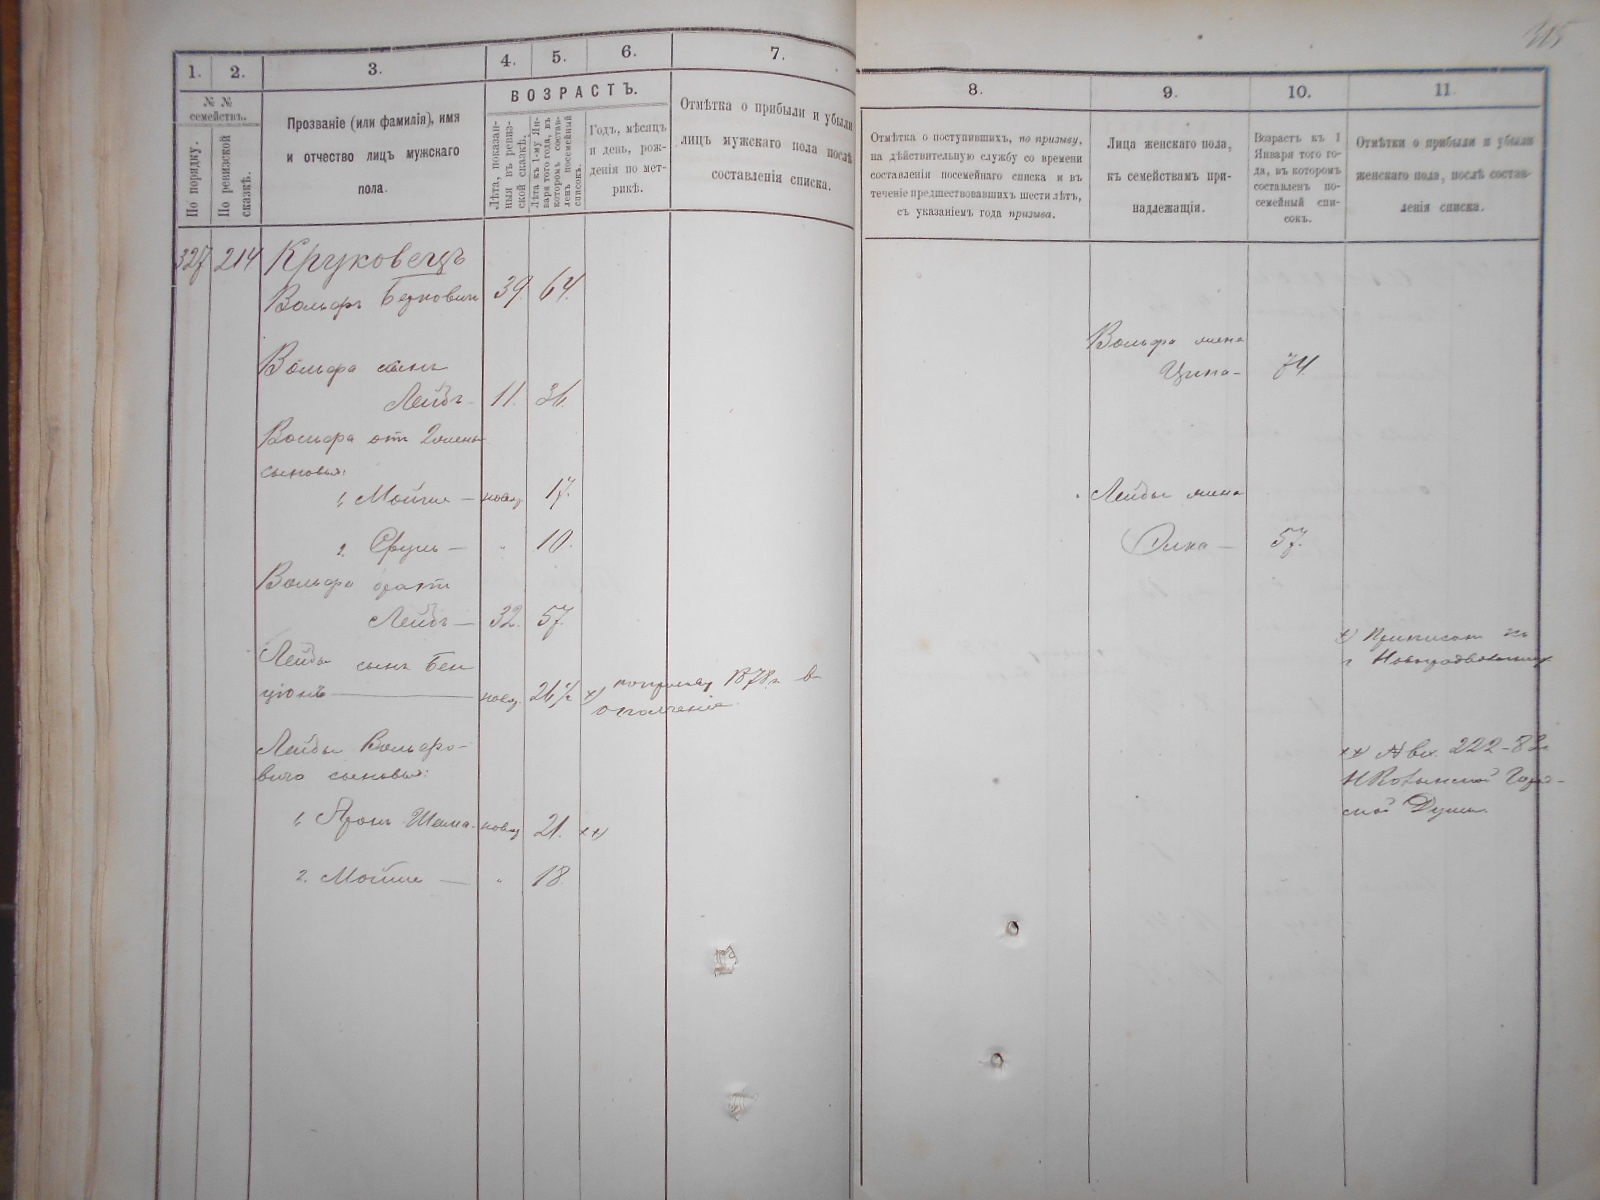 315
1. 2. 3. 4. 5. 6. 7. 8. 9. 10. 11
№ № семействъ.
По порядку.
По ревизской сказкѣ.
Прозваніе (или фамилія), имя
и отчество лицъ мужскаго
пола.
ВОЗРАСТЪ.
Лѣта, показанныя въ ревизской сказкѣ.
Лѣта къ 1-му Января того года, въ которомъ составленъ посемейный списокъ.
Годъ, мѣсяцъ
и день, рож-
денія по мет-
рикѣ.
Отмѣтка о прибыли и убыли
лицъ мужскаго пола послѣ
составленія списка.
Отмѣтка о поступившихъ, по призыву,
на дѣйствительную службу со времени
составленія посемейнаго списка и въ
теченіе предшествовавшихъ шести лѣтъ,
съ указаніемъ года призыва.
Лица женскаго пола,
къ семействамъ при-
надлежащія.
Возрастъ къ 1
Января того го-
да, въ которомъ
составленъ по-
семейный спи-
сокъ.
Отмѣтки о прибыли и убыли
женскаго пола, послѣ состав-
ленія списка.
327 214 Круковецъ
Вольфъ Беркович 39. 64.
Вольфа жена
Цина - 74.
Вольфа сынъ
Лейбъ - 11. 36.
Вольфа отъ 2 жены
сыновья:
1. Мойше - новор 17.
Лейбы жена
2. Сруль - " 10.
57.
Вольфа братъ
Лейбъ - 32. 57.
Лейбы сынъ Бен
ціонъ новор. 26½ х) 1878 г. в
ополченіе.
х) Приписан къ
Лейбы Вольфо-
вича сыновья:
хх) № вх. 222-82
Думы
1. Аронъ Шема - новор 21. хх)
2. Мойше - " 18.